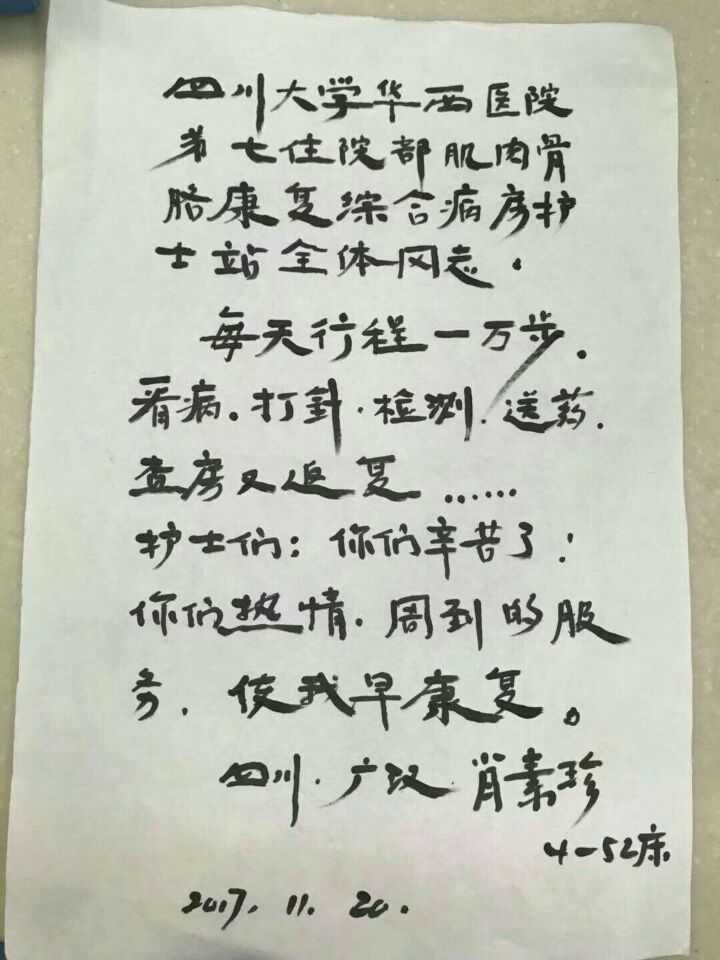 四川大学华西医院
第七住院部肌肉骨
胳康复综合病房护
士站全体同志。
每天行程一万步。
看病。打针、检测、送药、
查房又返复……
护士们：你们辛苦了！
你们热情、周到的服
务、使我早康复。
四川·广汉·肖素珍
4-52床
2017.11.20.